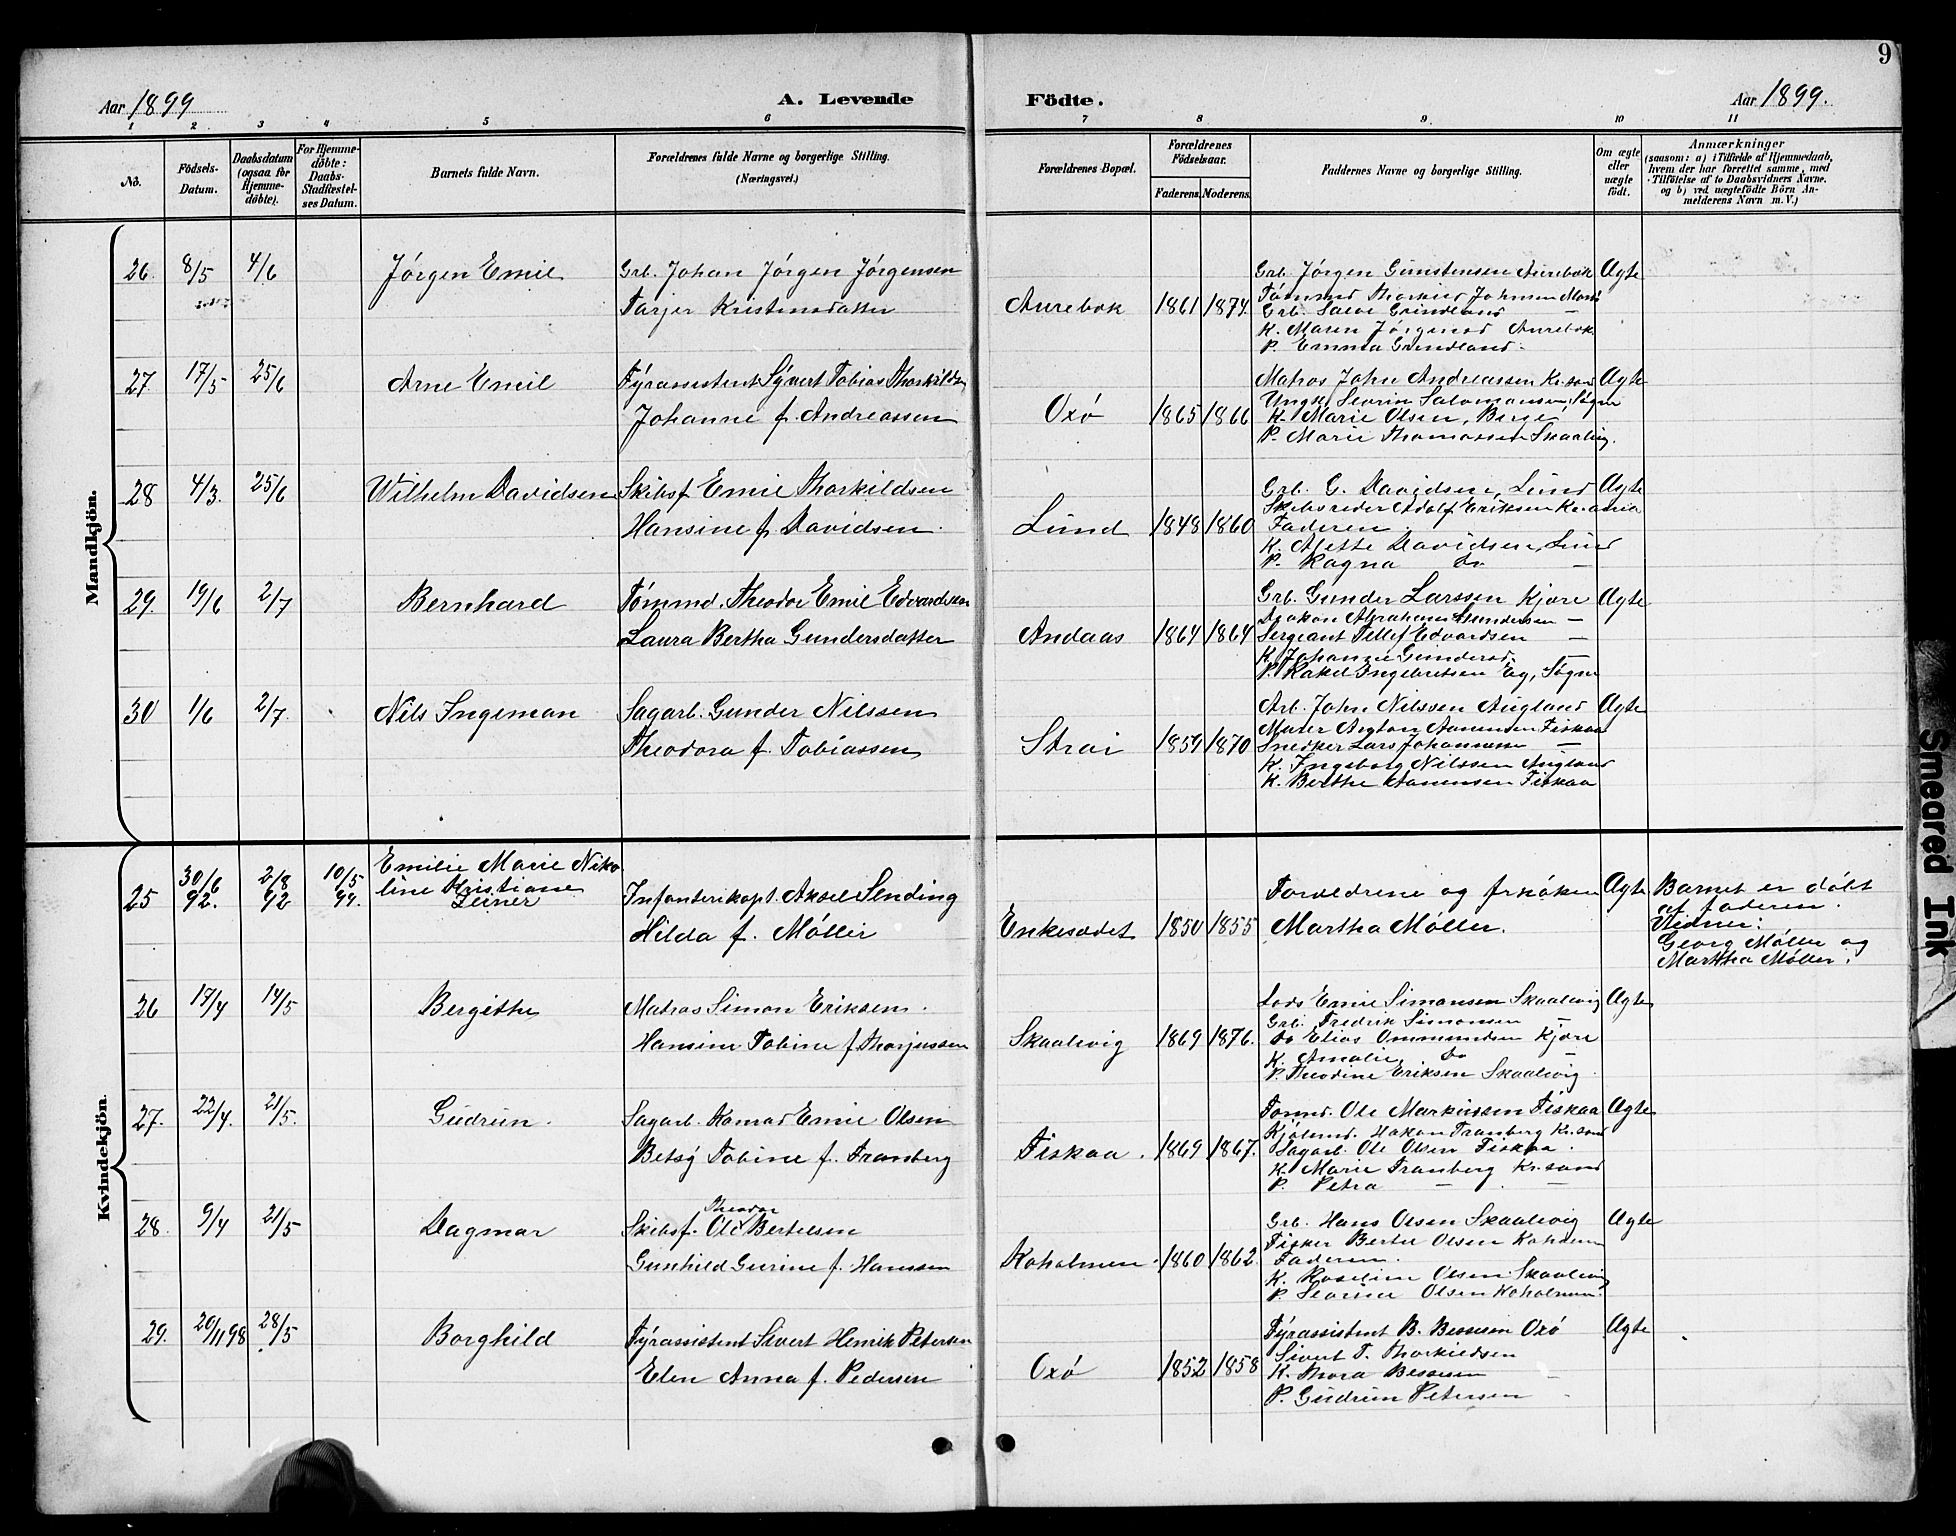 9
Aar 1899
A. Levende
Födte.
Aar 1899.
1 2 3 4 5 6 7 8 9 10 11
No.
Födsels-Datum.
Daabsdatum (ogsaa for Hjemme-döbte).
For Hjemme-döbte: Daabs-Stadfæstel-ses Datum.
Barnets fulde Navn.
Forældrenes fulde Navne og borgerlige Stilling. (Næringsvei.)
Forældrenes Bopæl.
Forældrenes Födselsaar.
Faderens. Moderens.
Faddernes Navne og borgerlige Stilling.
Om ægte eller uægte födt.
Anmærkninger
(saasom: a) i Tilfælde af Hjemmedaab,
hvem der har forrettet samme, med
Tilföielse af to Daabsvidners Navne.
og b) ved uægtefödte Börn An-
melderens Navn m. V.)
Mandkjön.
26. 8/5 4/6 Jörgen Emil
Grb. Johan Jörgen Jörgensen
Tarjer Kristensdatter
Aurebæk 1861 1874.
Grb. Jörgen Gunstensen Aurebæk
Grb. Salve Grindland —
K. Maren Jörgensd Aurebæk
P. Emma Grindland.
Ægte
27. 17/5 25/6 Arne Emil
Fyrassistent Syvert Tobias Thorkilds
Johanne f. Andreassen
Oxö 1865 1866
Matros John Andreassen Kr.sand
Ungk Severin Salomonsen, Søgne
K. Marie Olsen, Berge
P. Marie Thomassen Skaalvig.
Ægte
28 4/3. 25/6 Wilhelm Davidsen
Skibsf Emil Thorkildsen
Hansine f. Davidsen.
Lund 1848 1860
Grb. G. Davidsen, Lund
Skibsreder Adolf Eriksen Kr.ania
Faderen.
K. Mette Davidsen, Lund
P. Ragna Do —
Ægte
29. 19/6 2/7 Bernhard
Tömmd. Theodor Emil Edvardsen
Laura Bertha Gundersdatter
Andaas 1864 1864
Grb. Gunder Larssen Kjære
Diakon Abraham Gundersen —
Sergeant Tellef Edvardsen —
K. Johanne Gundersd. —
P. Rakel Ingebretsen Eg, Søgne
Ægte
30 1/6 2/7. Nils Ingeman
Sagarb. Gunder Nilssen
Theodora f. Tobiassen
Strai 1859 1870
Arb. John Nilssen Augland
Murer Anton Aanensen Fiskaa
Snedker Lars Johannessen —
K. Ingeborg Nilssen Augland
K. Berthe Aanensen Fiskaa
Ægte
Kvindekjön.
25 30/6 92. 2/8 92 10/5 99.
Emilie Marie Niko
line Kristiane
Leiner
Infanterikapt. Aksel Sending
Hilda f. Møller
Enkesædet 1850 1855
Forældrene og frøken
Martha Møller.
Ægte
Barnet er døbt
af faderen.
Vidner:
Georg Møller og
Martha Møller.
26 17/4 14/5 Bergithe
Matros Simon Eriksen.
Hansine Tobine f. Thorjussen
Skaalevig 1869 1876.
Lods Emil Simonsen Skaalevig
Grb. Fredrik Simonsen —
Do Elias Ommundsen Kjære
K. Amalie Do —
P. Theodine Eriksen Skaalevig
Ægte
27. 22/4. 21/5. Gudrun.
Sagarb. Konrad Emil Olsen
Betsy Tobine f. Tranberg
Fiskaa. 1869 1867.
Tømd. Ole Markussen Fiskaa
Kjölmd. Hakon Tranberg Kr.sand
Sagarb. Ole Olsen Fiskaa.
K. Marie Tranberg Kr.sand
P. Petra — . —
Ægte
28. 9/4 21/5 Dagmar
Theodor
Skibsf. Ole Bertelsen
Gunhild Gurine f. Hanssen
Kaholmen. 1860 1862.
Grb. Hans Olsen Skaalevig
Fisker Bertel Olsen Kaholmen
Faderen.
K. Roseline Olsen Skaalevig
P. Severine Olsen Kaholmen.
Ægte
29. 20/11 98 28/5 Borghild
Fyrassistent Sivert Henrik Petersen
Elen Anna f. Pedersen
Oxö 1852 1858
Fyrassistent B. Bessesen Oxö
Sivert T. Thorkildsen
K. Thora Bessesen —
P. Gudrun Petersen -
Ægte
Smeared Ink